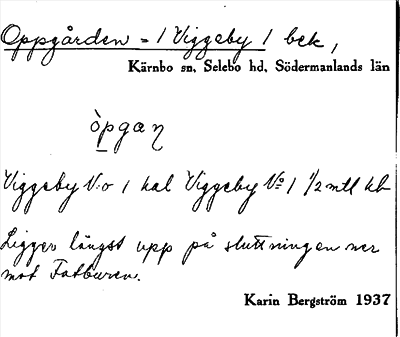 Oppgården = 1 Viggeby 1 bek,
Kärnbo sn, Selebo hd, Södermanlands län
òpgaɳ
Viggeby N:o 1 kal Viggeby No 1 1/2 mtl kh
Ligger längst upp på sluttningen ner
mot Fatburen.
Karin Bergström 1937